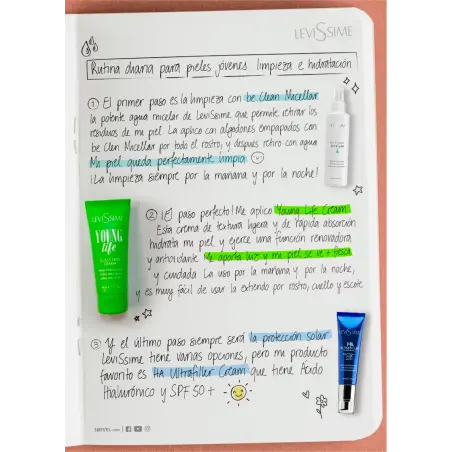 LEVISSIME
Rutina diaria para pieles jóvenes limpieza e hidratación
① El primer paso es la limpieza con be Clean Micellar
la potente agua micelar de Levissime que permite retirar los
residuos de mi piel. La aplico con algodones empapados con
be Clen Micellar por todo el rostro, y después retiro con agua
Mi piel queda perfectamente limpia
¡La limpieza siempre por la mañana y por la noche!
LEVISSIME
② ¡El paso perfecto! Me aplico Young Life Cream
Esta crema de textura ligera y de rápida absorción
hidrata mi piel y ejerce una función renovadora
y antioxidante. Me aporta luz y mi piel se ve + fresca
y cuidada. La uso por la mañana y por la noche,
y es muy fácil de usar la extiendo por rostro, cuello y escote
LEVISSIME
YOUNG
life
③ Y el último paso siempre será la protección solar
Levissime tiene varias opciones, pero mi producto
favorito es HA Ultrafiller Cream que tiene Ácido
Hialurónico y SPF 50+
LEVISSIME
HA